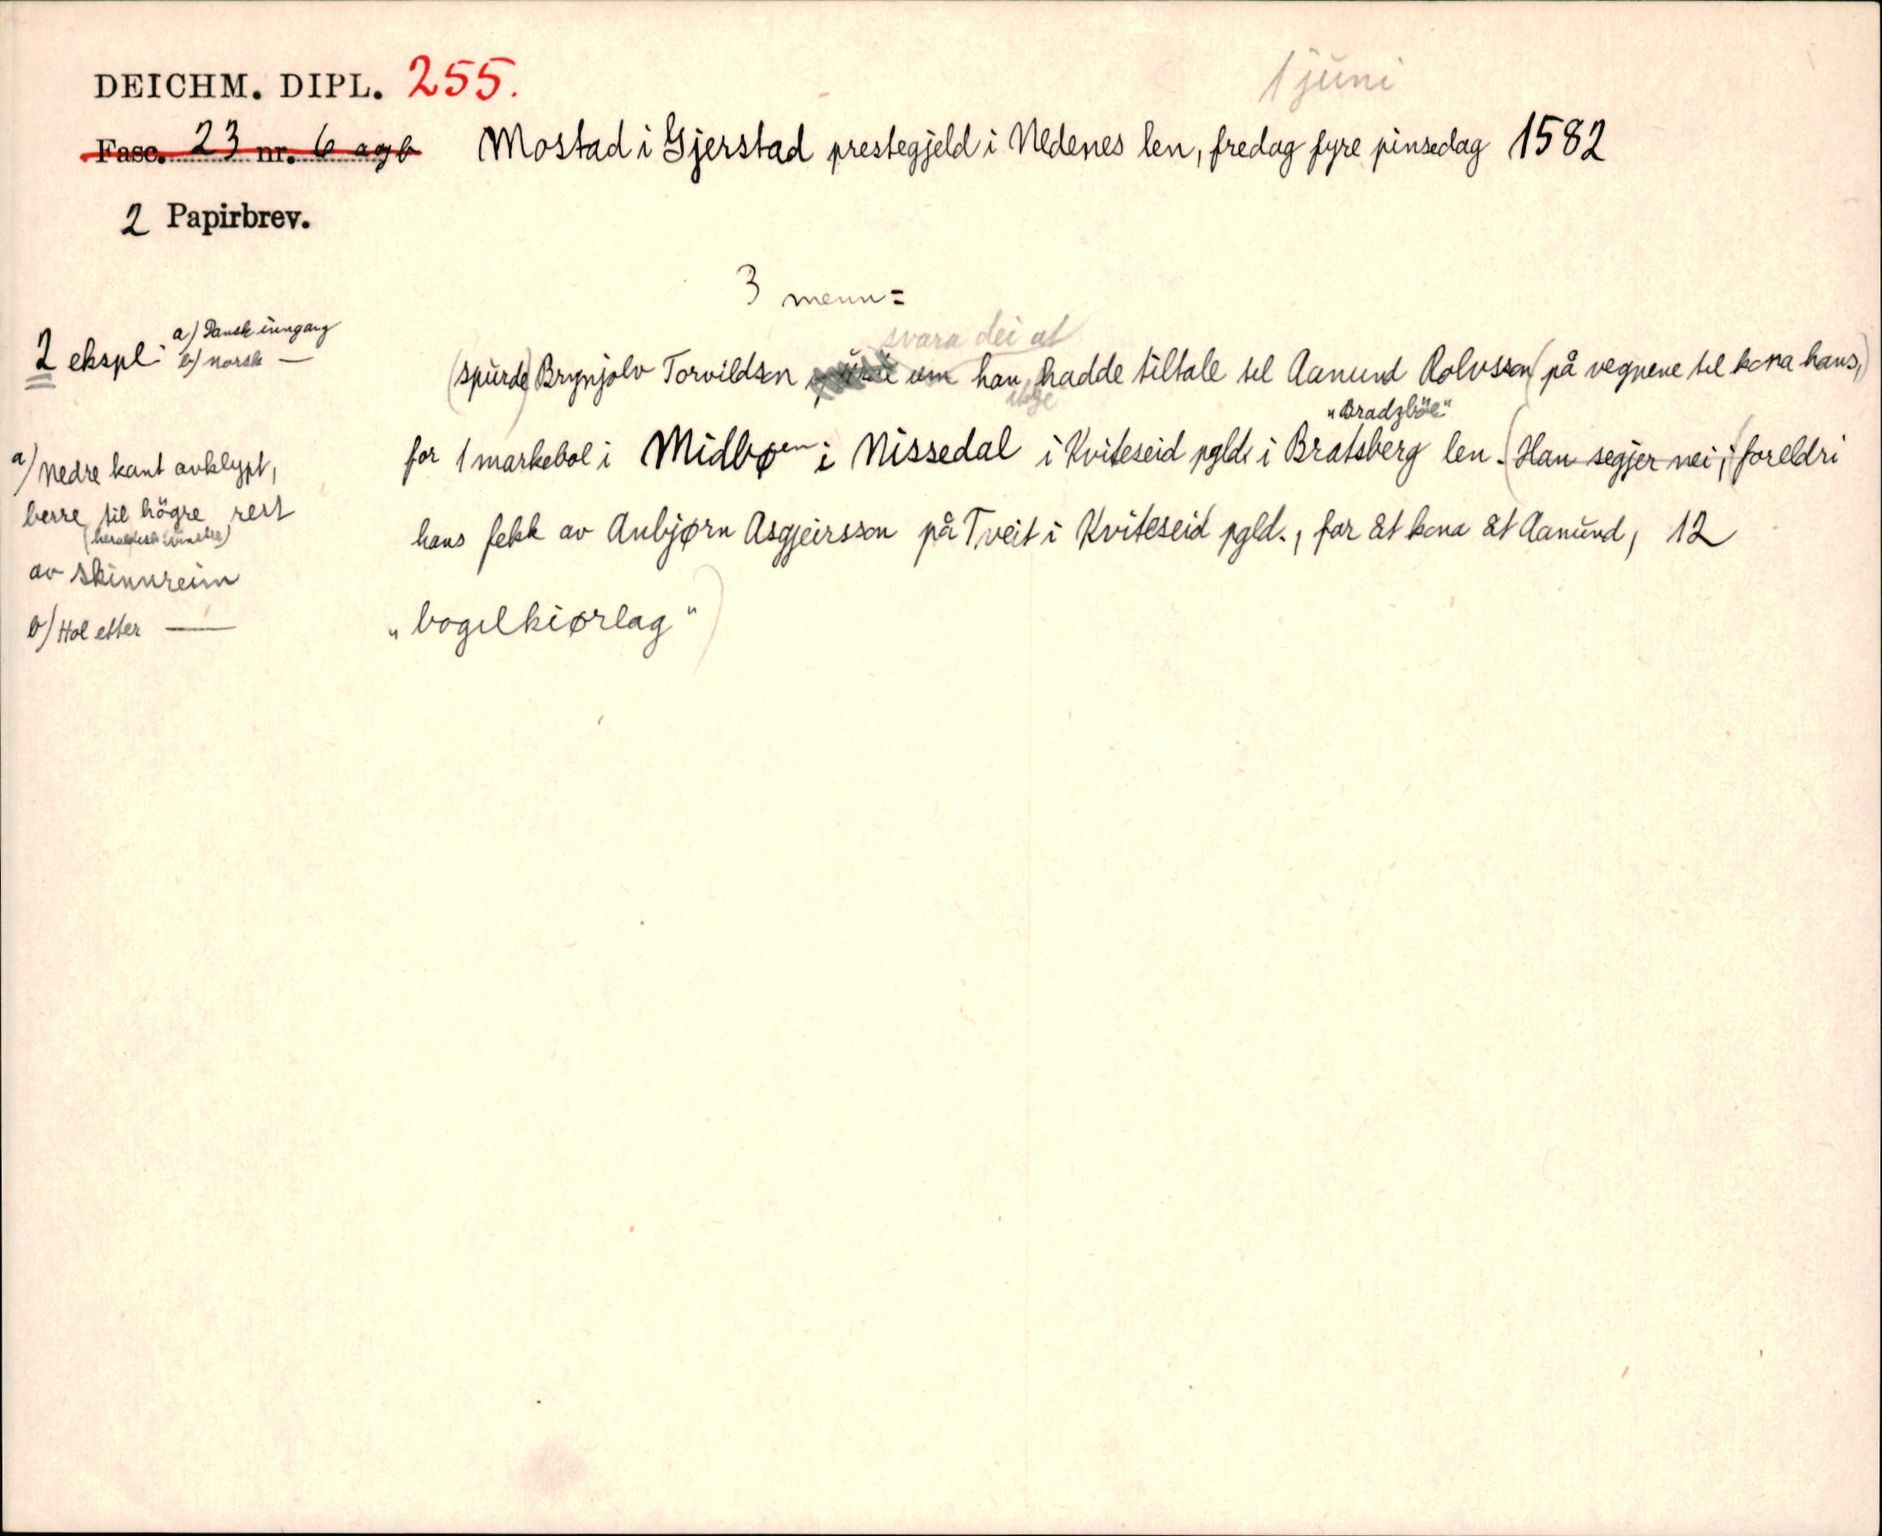 DEICHM. DIPL. 255.
1 juni
Fasc. 23 nr. 6 a og b Mostad i Gjerstad prestegjeld i Nedenes len, fredag fyre pinsedag 1582
2 Papirbrev.
3 menn =
2 ekspl. a) Dansk inngang
b) norsk —
svara dei at
(spurde) Brynjolv Torvildsen um han ikkje hadde tiltale til Aanund Rolvsson (på vegnene til kona hans,)
"Bradzböe"
for 1 markebol i Midbøen i Nissedal i Kviteseid pgld. i Bratsberg len. (Han segjer nei, (foreldri
hans fekk av Anbjørn Asgjeirsson på Tveit i Kviteseid pgld., far åt kona åt Aanund, 12
"bogilkiørlag")
a) Nedre kant avklypt,
berre til högre rest
(heraldisk vinstre)
av skinnreim
b) Hol etter —